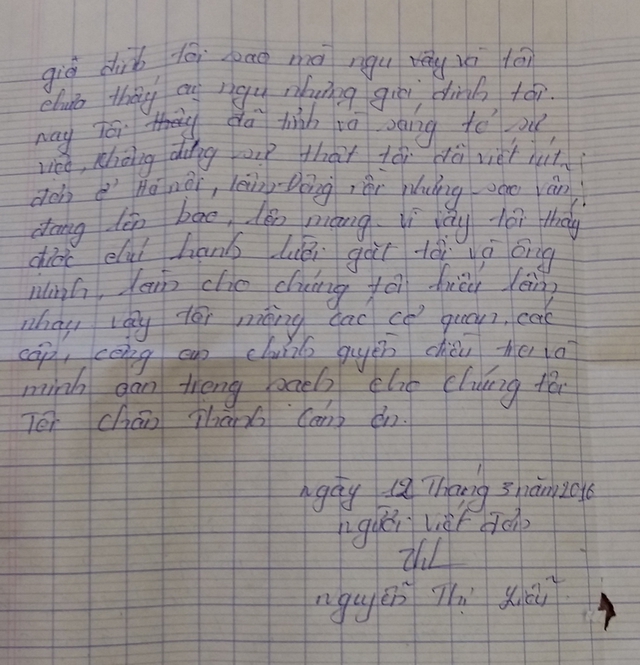 giá đình tôi sao mà ngu vậy vì tôi
chưa thấy ai ngu nhưng giá đình tôi.
nay Tôi thấy đã tỉnh và sáng tỏ sự
việc, không đúng sự thật tôi đã viết rút
đơn ở Hà nội, lâm Đồng rồi nhưng sao vẫn
đang lên bao, lên mang. vì vậy tôi thấy
được chú hanh lười gát tôi và ông
minh, làm cho chúng tôi hiểu lầm
nhau vậy tôi mông các cơ quan, các
cấp, công an chính quyền điều tra và
minh oan trong sach cho chúng tôi
Tôi chân Thành Cám ơn.
ngày 12 Tháng 3 năm 2016
người viết đơn
nguyễn Thị Liễu